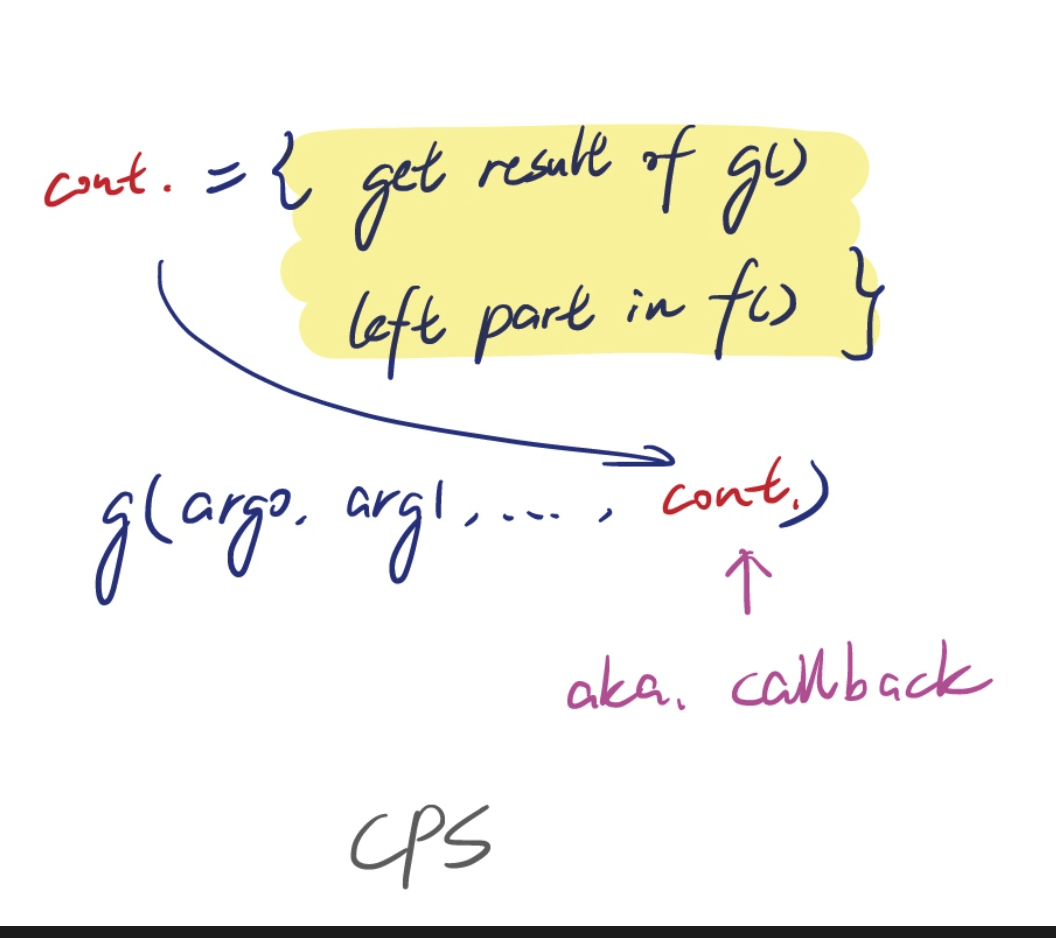 cont. = { get result of g()
left part in f() }
g(arg0, arg1, ..., cont.)
↑
aka. callback
CPS